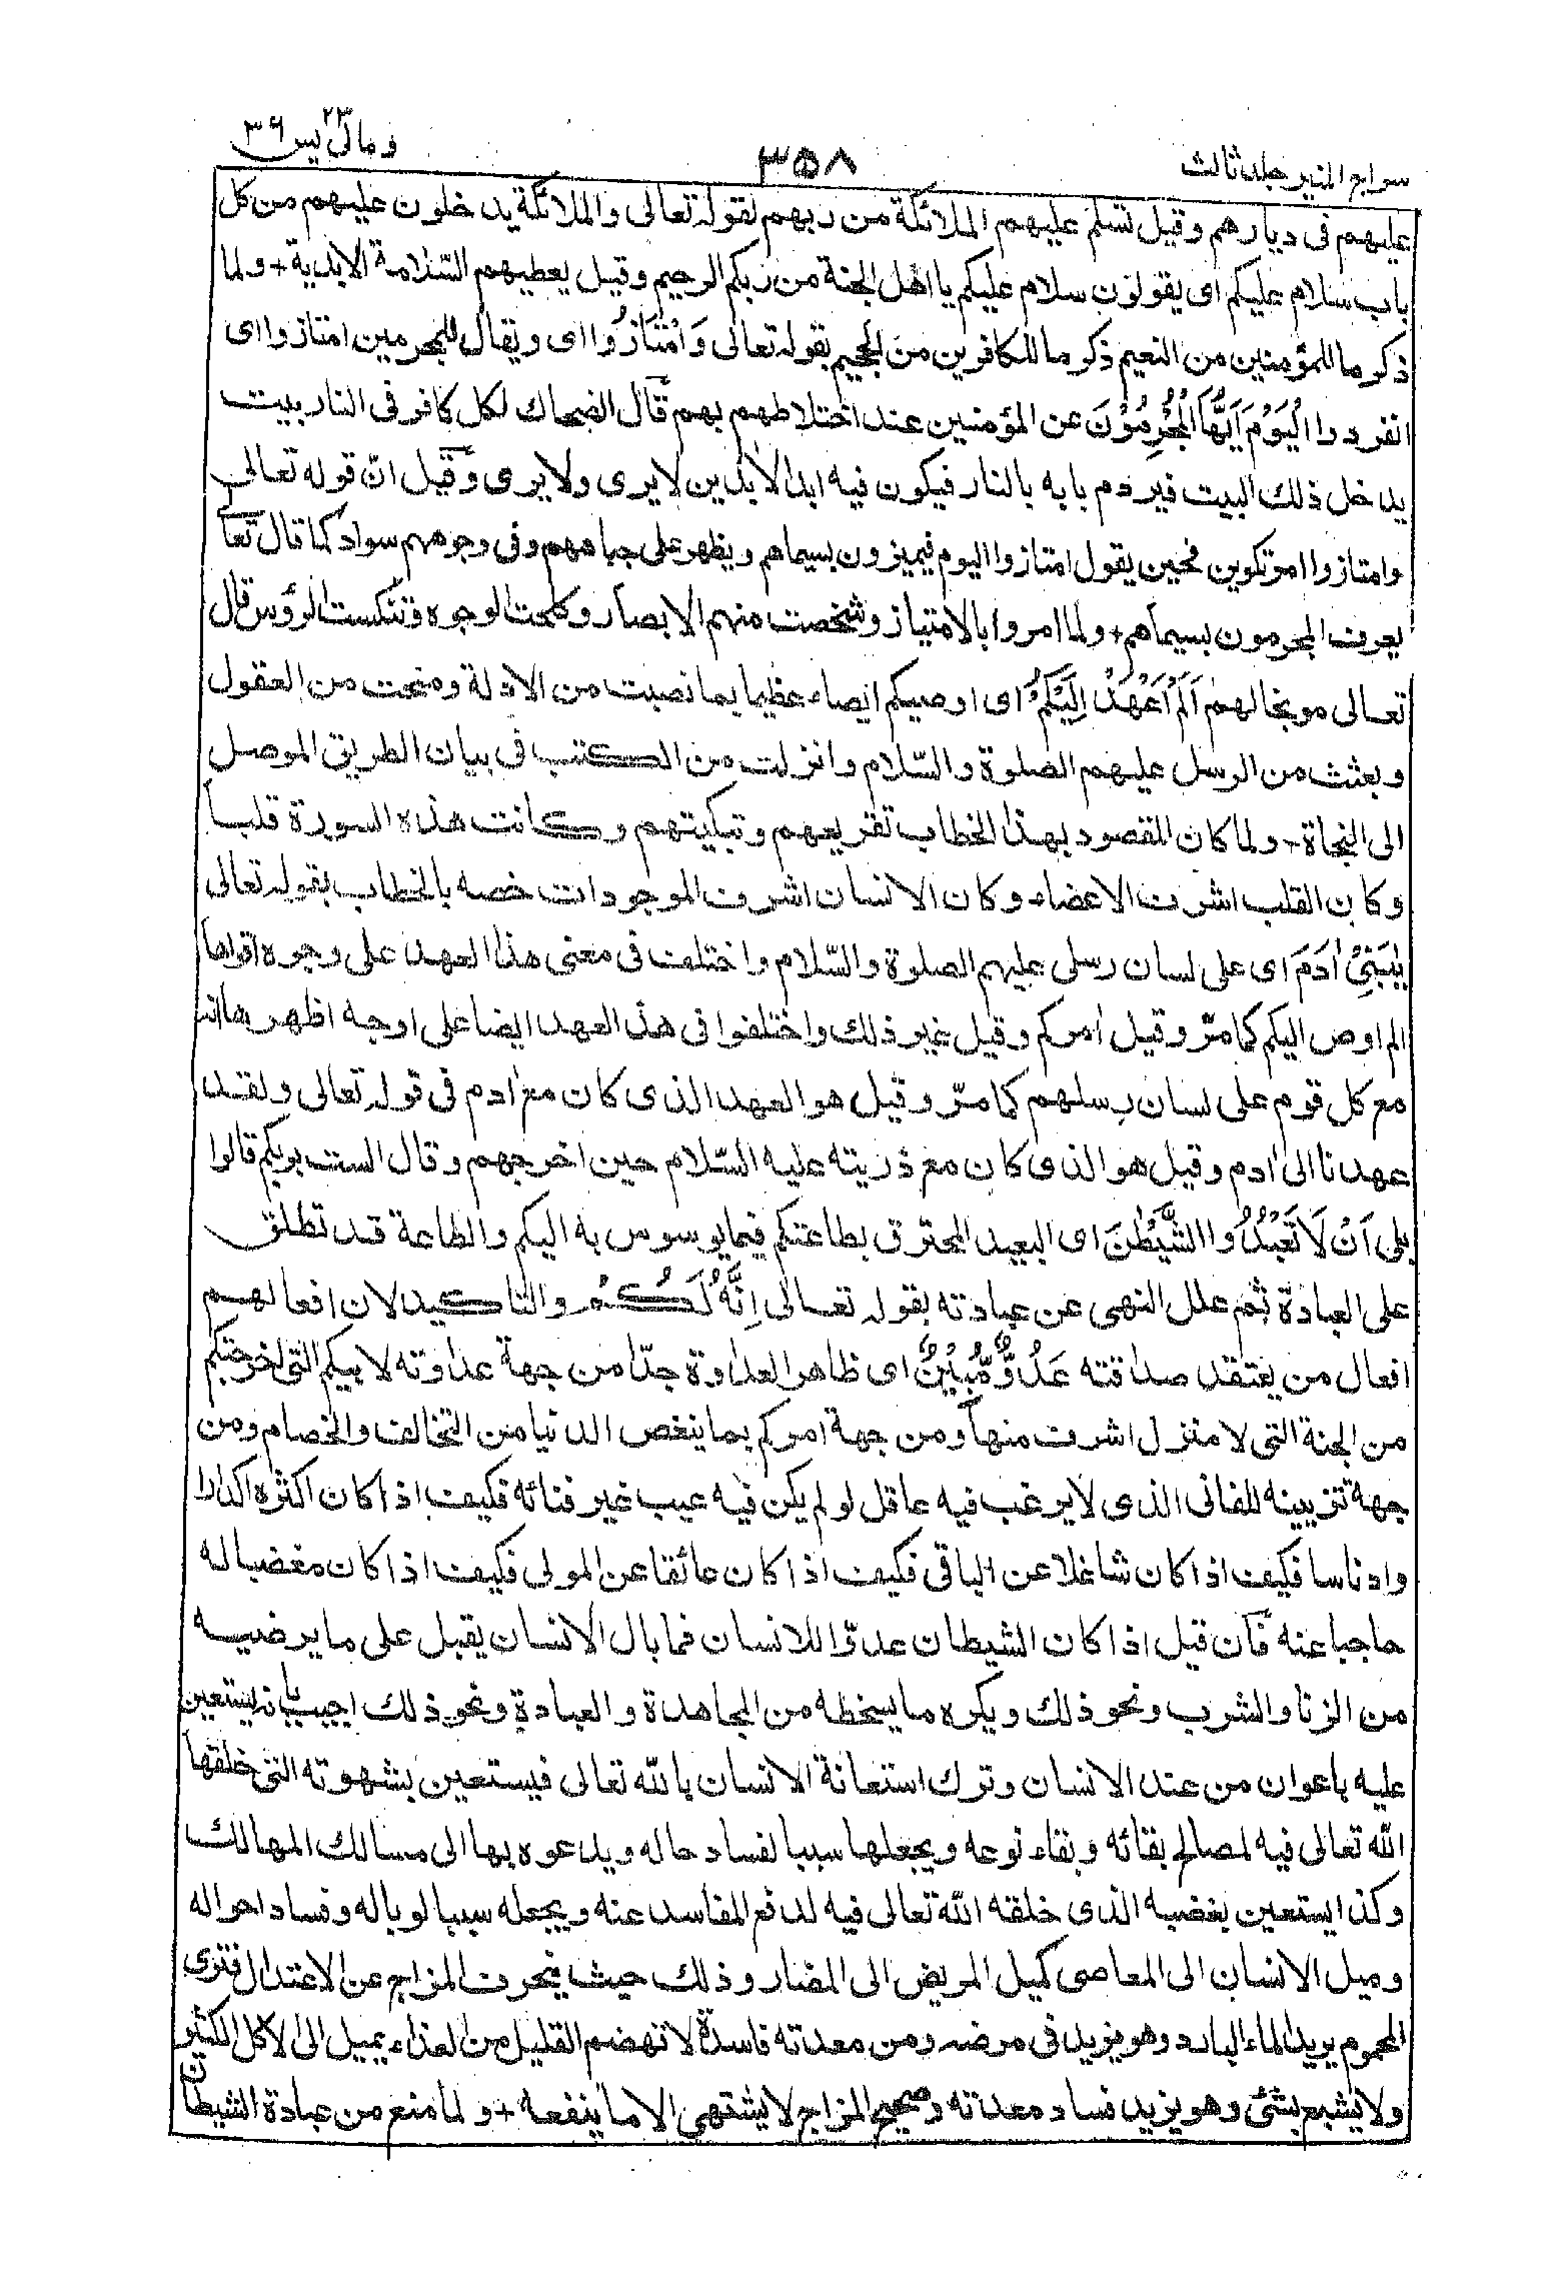 سراج المنير جلد ثالث
٣٥٨
ومالى ٢٣ يس ٣٦
عليهم فى ديارهم وقيل تسلم عليهم الملائكة من ربهم لقوله تعالى والملائكة يدخلون عليهم من كل
باب سلام عليكم اى يقولون سلام عليكم يا اهل الجنة من ربكم الرحيم وقيل يعطيهم السّلامة الابدية + ولما
ذكر ما للمؤمنين من النعيم ذكر ما للكافرين من الجحيم بقوله تعالى وَامْتَازُوا اى ويقال للمجرمين امتازوا اى
انفردوا الْيَوْمَ اَيُّهَا الْمُجْرِمُوْنَ عن المؤمنين عند اختلاطهم بهم قال الضحاك لكل كافر فى النار بيت
يدخل ذلك البيت فيردم بابه بالنار فيكون فيه ابد الابدين لا يرى ولا يرى وقيل انّ قوله تعالى
وامتازوا امر تكوين فحين يقول امتازوا اليوم فيميزون بسيماهم ويظهر على جباههم وفى وجوههم سواد كما قال تعالى
يعرف المجرمون بسيماهم + ولما امروا بالامتياز وشخصت منهم الابصار وكلحت الوجوه وتنكست الرؤس قال
تعالى موبخا لهم اَلَمْ اَعْهَدْ اِلَيْكُمْ اى اوصيكم ايصاء عظيما بما نصبت من الادلة ومنحت من العقول
وبعثت من الرسل عليهم الصلوة والسّلام وانزلت من الكتب فى بيان الطريق الموصل
الى النجاة - ولما كان المقصود بهذا الخطاب تقريعهم وتبكيتهم وكانت هذه السورة قلبا
وكان القلب اشرف الاعضاء وكان الانسان اشرف الموجودات خصه بالخطاب بقوله تعالى
يٰبَنِىْٓ اٰدَمَ اى على لسان رسلى عليهم الصلوة والسّلام واختلف فى معنى هذا العهد على وجوه اقواها
الم اوص اليكم كما مرّ وقيل اٰمركم وقيل غير ذلك واختلفوا فى هذا العهد ايضا على اوجه اظهرها انه
مع كل قوم على لسان رسلهم كما مرّ وقيل هو العهد الذى كان مع اٰدم فى قوله تعالى ولقد
عهدنا الى اٰدم وقيل هو الذى كان مع ذريته عليه السّلام حين اخرجهم وقال الست بربكم قالوا
بلى اَنْ لَا تَعْبُدُوا الشَّيْطٰنَ اى البعيد المحترق بطاعتكم فيما يوسوس به اليكم والطاعة قد تطلق
على العبادة ثم علل النهى عن عبادته بقوله تعالى اِنَّهٗ لَكُمْ والتاكيد لان افعالهم
افعال من يعتقد صداقته عَدُوٌّ مُّبِيْنٌ اى ظاهر العداوة جدّا من جهة عداوته لابيكم التى اخرجتكم
من الجنة التى لا منزل اشرف منها ومن جهة امركم بما ينغص الدنيا من التخالف والخصام ومن
جهة تزيينه للفانى الذى لا يرغب فيه عاقل لو لم يكن فيه عيب غير فنائه فكيف اذا كان اكثره اكدارا
وادناسا فكيف اذا كان شاغلا عن الباقى فكيف اذا كان عائقا عن المولى فكيف اذا كان مغضبا له
حاجبا عنه فان قيل اذا كان الشيطان عدوّا للانسان فما بال الانسان يقبل على ما يرضيه
من الزنا والشرب ونحو ذلك ويكره ما يسخطه من المجاهدة والعبادة ونحو ذلك اجيب بانه يستعين
عليه باعوان من عند الانسان وترك استعانة الانسان بالله تعالى فيستعين بشهوته التى خلقها
الله تعالى فيه لمصالح بقائه وبقاء نوعه ويجعلها سببا لفساد حاله ويدعوه بها الى مسالك المهالك
وكذا يستعين بغضبه الذى خلقه الله تعالى فيه لدفع المفاسد عنه ويجعله سببا لوباله وفساد احواله
وميل الانسان الى المعاصى كميل المريض الى المضار وذلك حيث ينحرف المزاج عن الاعتدال فترى
المحموم يريد الماء البارد وهو يزيد فى مرضه ومن معدته فاسدة لا تهضم القليل من الغذاء يميل الى الاكل الكثير
ولا يشبع بشئ وهو يزيد فساد معدته وصحيح المزاج لا يشتهى الا ما ينفعه + ولما منع من عبادة الشيطان